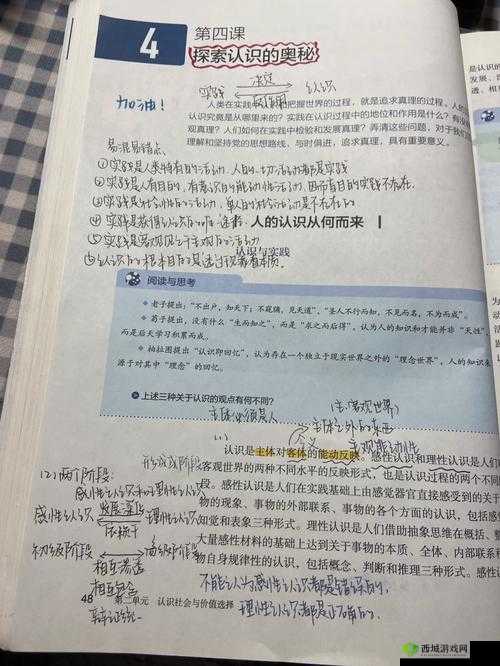 4
第四课
探索认识的奥秘
决定
实践 认识
加油!
人类在实践中 把握世界的过程,就是追求真理的过程。人的
认识究竟是从哪里来的?实践在认识过程中的地位和作用是什么?有没
观真理?人们如何在实践中检验和发展真理?弄清这些问题,对于我们
理解和坚持党的思想路线、与时俱进、追求真理,具有重要意义。
易混易错点
①实践是人类特有的活动,人的一切活动都是实践
②实践是有目的,有意识的能动性活动,因而盲目的实践不存在.
③实践是社会性的活动,单人的 活动是不存在的
④实践是
人的认识从何而来
⑤实践是客观 于主观 的活动
认识与实践
⑥认识的根本目的是透过现象看本质.
阅读与思考
老子提出:“不出户,知天下;不窥牖,见天道”,“圣人不行而知,不见而名,不为而成”。
荀子提出,没有什么“生而知之”,而是“求之而后得”,认为人的知识和才能并非“天性”,
而是后天学习积累而成。
柏拉图提出“认识即回忆”,认为存在一个独立于现实世界之外的“理念世界”,人的知识来
源于对其中“理念”的回忆。
上述三种关于认识的观点有何不同?
主体必须是人
(客观世界)
主体之外的东西
(1)
含义
主观能动性
认识是主体对客体的能动反映。感性认识和理性认识是人们
客观世界的两种不同水平的反映形式,也是认识过程的两个不同
段。感性认识是人们在实践基础上由感觉器官直接感受到的关于
物的现象、事物的外部联系、事物的各个方面的认识,包括感觉
知觉和表象三种形式。理性认识是人们借助抽象思维在概括、整
大量感性材料的基础上达到关于事物的本质、全体、内部联系和
物自身规律性的认识,包括概念、判断和推理三种形式。感性认
(2)两个阶段:
感性认识和理性认识
感性认识 发展深化 理性认识
依赖于
初级阶段 高级阶段
相互渗透
相互包含
辩证统一
不能认为感性认识都是错误的,
理性认识都是正确的.
48 第二单元 认识社会与价值选择
是认识的
发展、
透、相
西城游戏网